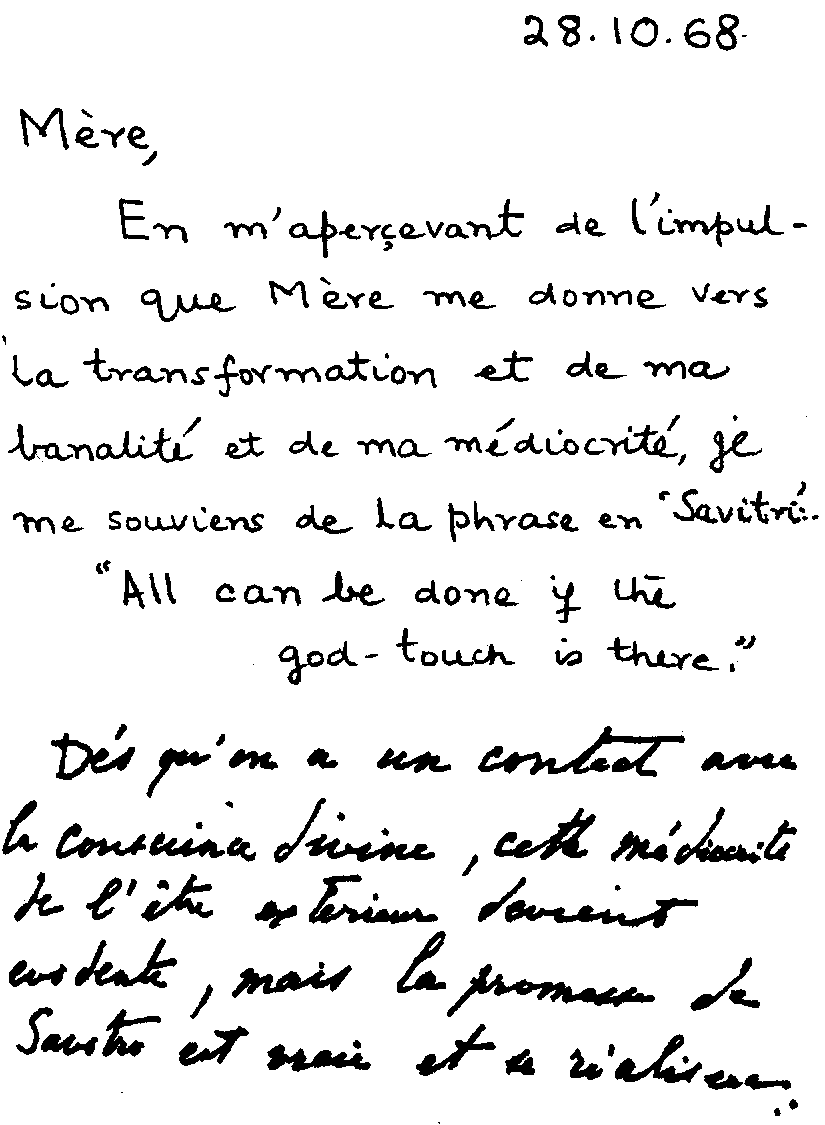 28.10.68.
Mère,
En m'aperçevant de l'impul-
sion que Mère me donne vers
la transformation et de ma
banalité et de ma médiocrité, je
me souviens de la phrase en "Savitri:
"All can be done if the
god-touch is there."
Dés qu'on a un contact avec
la conscience divine, cette médiocrité
de l'être exterieur devient
evidente, mais la promesse de
Savitri est vraie et se réalisera.